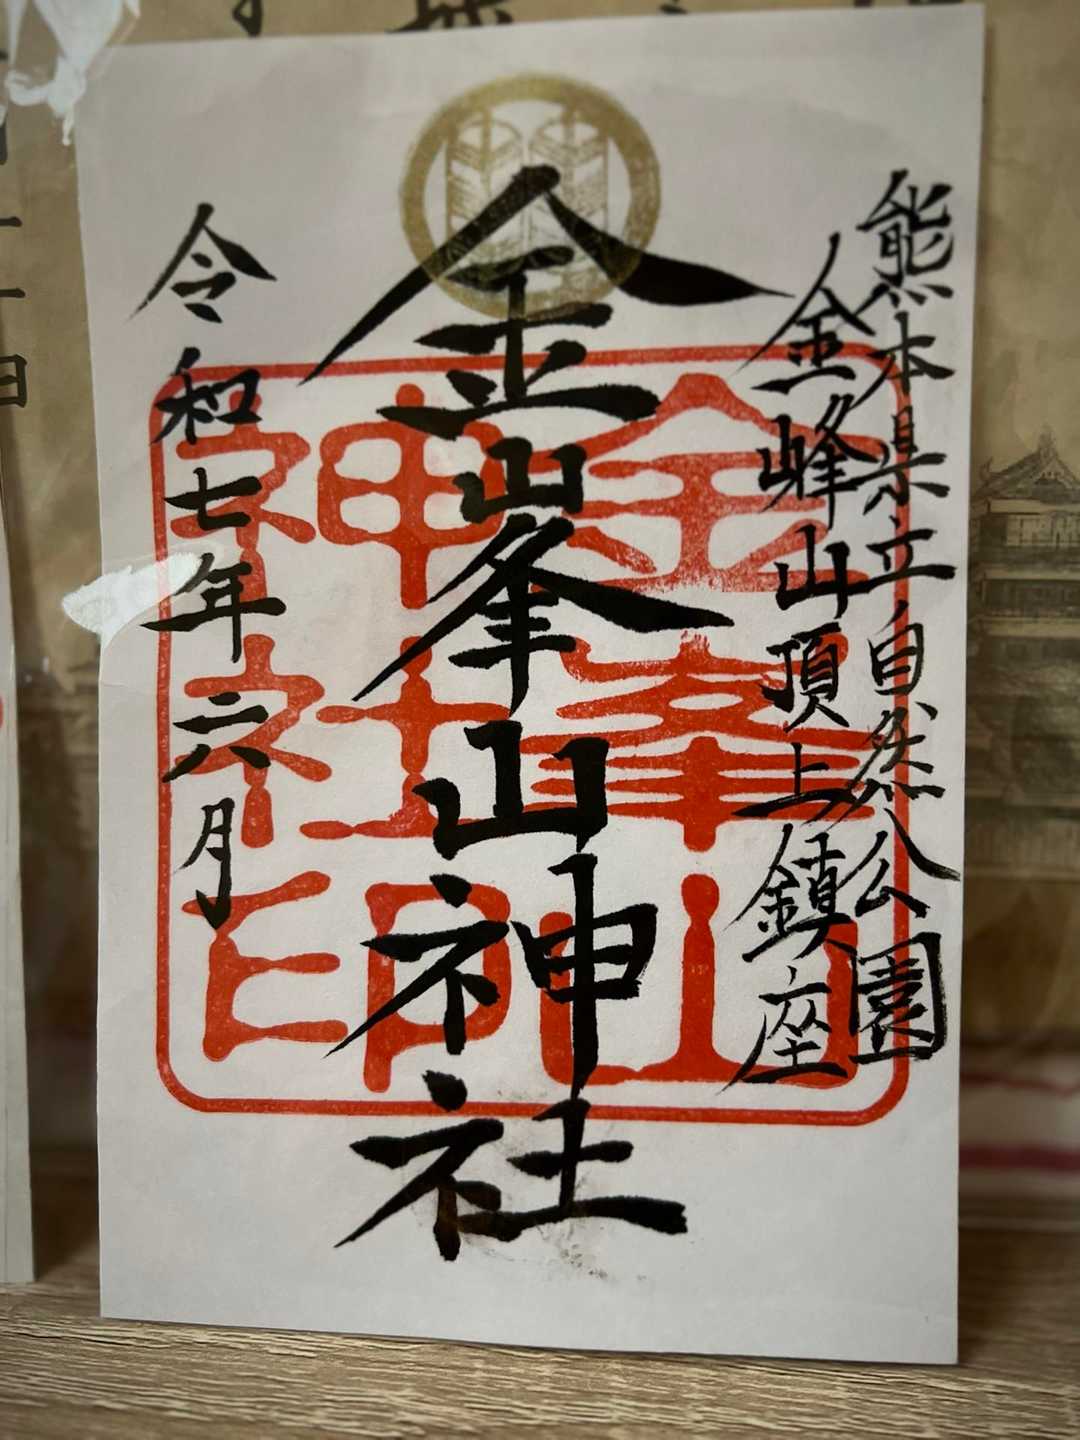 熊本県立自然公園
金峰山頂上鎮座
金峯山神社
令和七年六月
金峯山
神社印